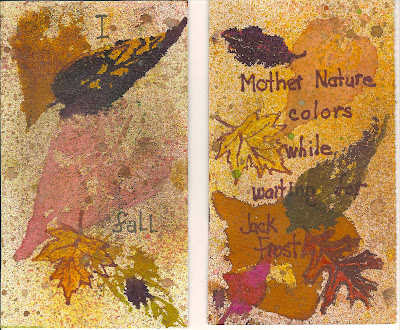 I
fall
Mother Nature
colors
while
waiting for
Jack
Frost